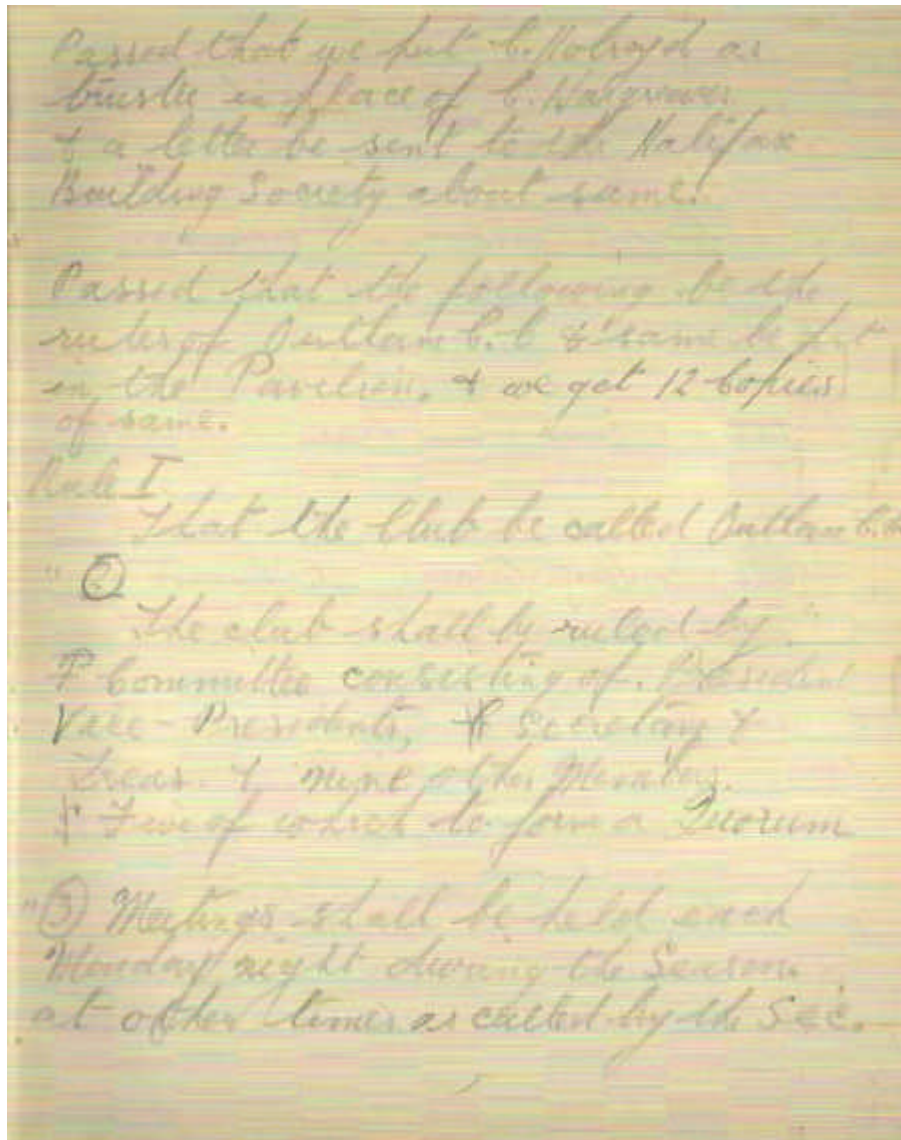 Passed that we put C. Holroyd as
trustee in place of C. Hargreaves
& a letter be sent to the Halifax
Building Society about same.
Passed that the following be the
rules of Outlane C.C & same be put
in the Pavilion, & we get 12 Copies
of same.
Rule I
That the Club be called Outlane C.C
" 2
The club shall by ruled by
Committee consisting of. President
Vice-Presidents, Secretary &
Treas. & nine other Members.
Five of which to form a Quorum
" 3 Meetings shall be held each
Monday night during the Season
at other times as called by the Sec.